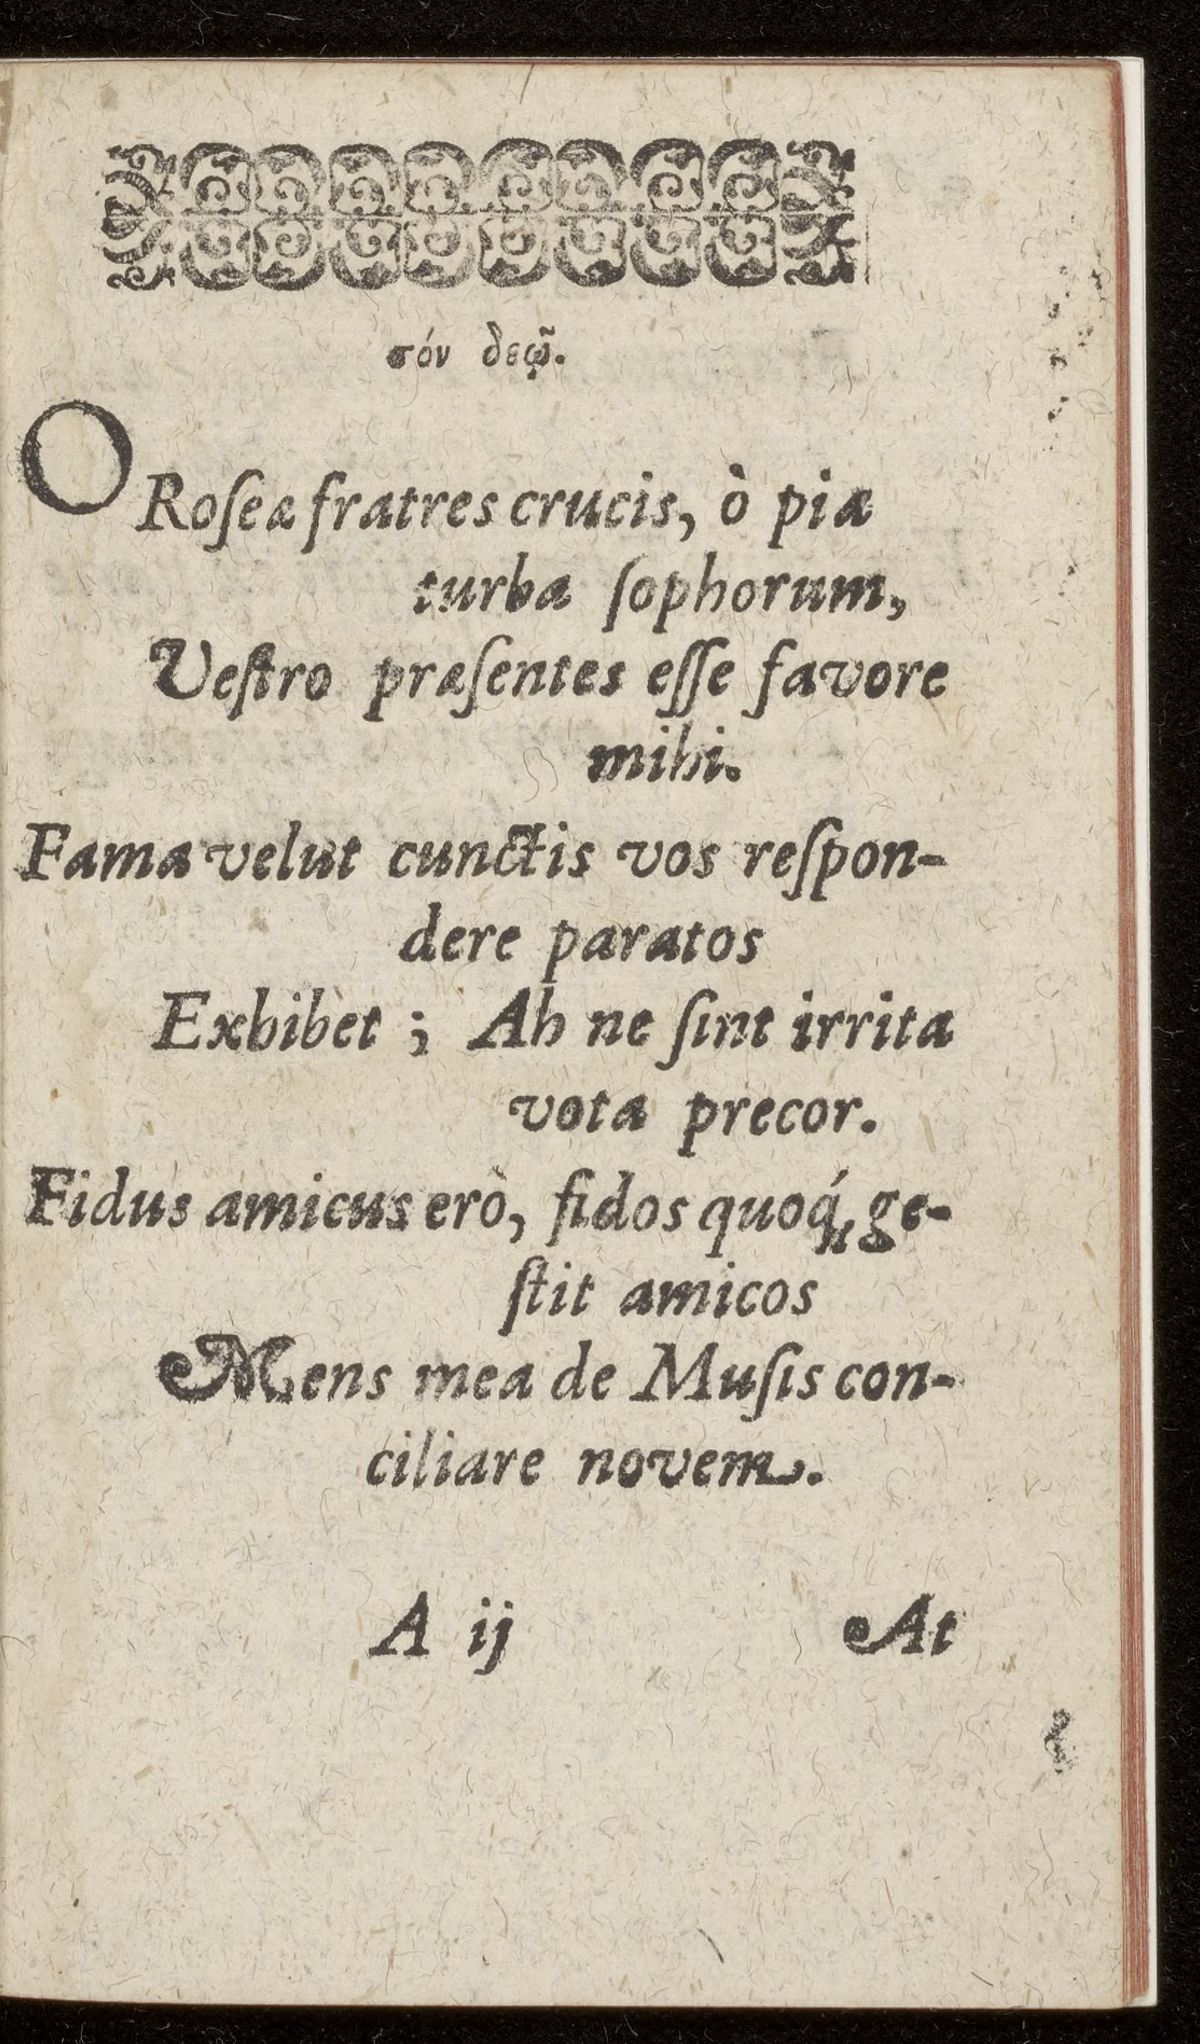 σόν δεῳ̃.
O Roſeæ fratres crucis, ò piæ
turba ſophorum,
Veſtro præſentes eſſe favore
mihi.
Fama velut cunctis vos reſpon-
dere paratos
Exhibet ; Ah ne ſint irrita
vota precor.
Fidus amicus erò, fidos quoq́; ge-
ſtit amicos
Mens mea de Muſis con-
ciliare novem.
A ij At